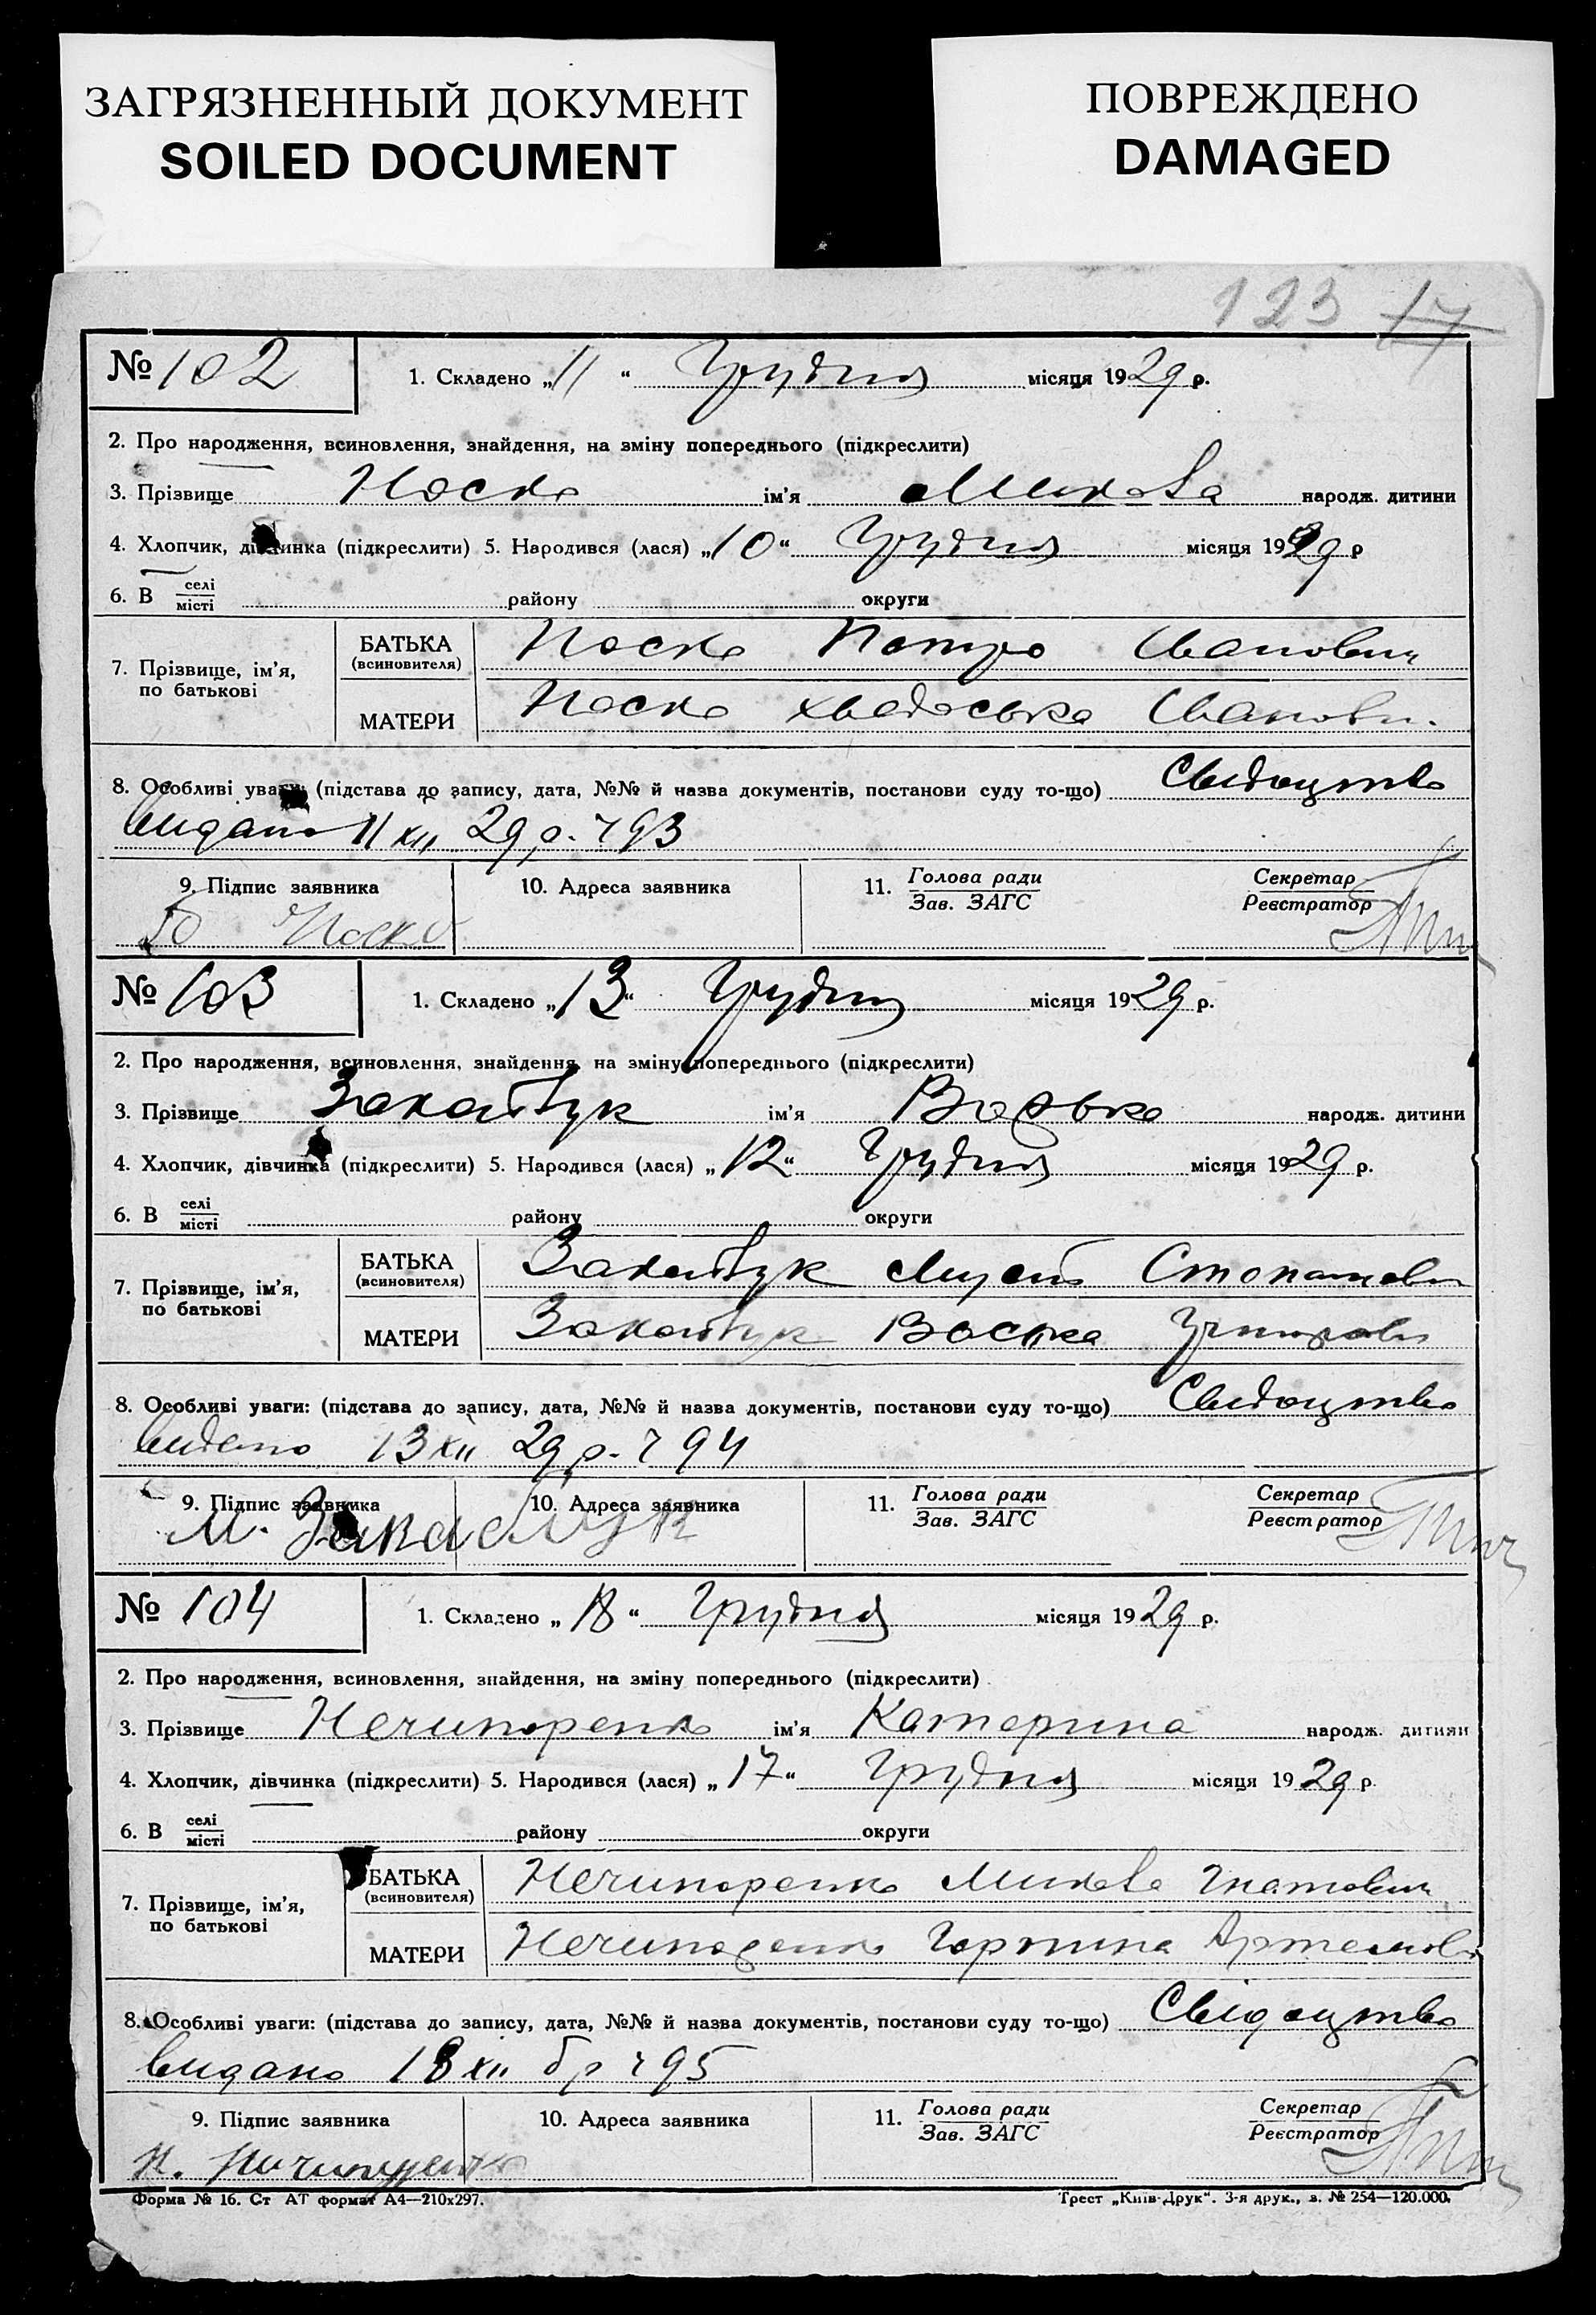 ЗАГРЯЗНЕННЫЙ ДОКУМЕНТ
SOILED DOCUMENT
ПОВРЕЖДЕНО
DAMAGED
123 17
№ 102 1. Складено „11“ Грудня місяця 1929 р.
2. Про народження, всиновлення, знайдення, на зміну попереднього (підкреслити)
3. Прізвище Носко ім'я Микола народж. дитини
4. Хлопчик, дівчинка (підкреслити) 5. Народився (лася) „10“ Грудня місяця 1929 р
6. В селі місті району округи
7. Прізвище, ім'я, по батькові
БАТЬКА (всиновителя) Носко Петро Іванович
МАТЕРИ Носко Хведоська Іванов.
8. Особливі уваги: (підстава до запису, дата, №№ й назва документів, постанови суду то-що) Свидоцтво
видано 11 XII 29 р. ч 93
9. Підпис заявника 10. Адреса заявника 11. Голова ради Зав. ЗАГС Секретар Реєстратор
Носко
№ 103 1. Складено „13“ Грудня місяця 1929 р.
2. Про народження, всиновлення, знайдення, на зміну попереднього (підкреслити)
3. Прізвище Закаблук ім'я Варька народж. дитини
4. Хлопчик, дівчинка (підкреслити) 5. Народився (лася) „12“ Грудня місяця 1929 р.
6. В селі місті району округи
7. Прізвище, ім'я, по батькові
БАТЬКА (всиновителя) Закаблук Мусій
МАТЕРИ Закаблук Васька
8. Особливі уваги: (підстава до запису, дата, №№ й назва документів, постанови суду то-що) Свидоцтво
видано 13 XII 29 р. ч 94
9. Підпис заявника 10. Адреса заявника 11. Голова ради Зав. ЗАГС Секретар Реєстратор
М. Закаблук
№ 104 1. Складено „18“ Грудня місяця 1929 р.
2. Про народження, всиновлення, знайдення, на зміну попереднього (підкреслити)
3. Прізвище Нечипоренко ім'я Катерина народж. дитини
4. Хлопчик, дівчинка (підкреслити) 5. Народився (лася) „17“ Грудня місяця 1929 р.
6. В селі місті району округи
7. Прізвище, ім'я, по батькові
БАТЬКА (всиновителя) Нечипоренко Микола Гнатович
МАТЕРИ Нечипоренко Горпина Артемов
8. Особливі уваги: (підстава до запису, дата, №№ й назва документів, постанови суду то-що) Свідоцтво
видано 18 XII б р ч 95
9. Підпис заявника 10. Адреса заявника 11. Голова ради Зав. ЗАГС Секретар Реєстратор
Форма № 16. Ст АТ формат А4—210х297. Трест „Київ-Друк“. 3-я друк., з. № 254—120.000.